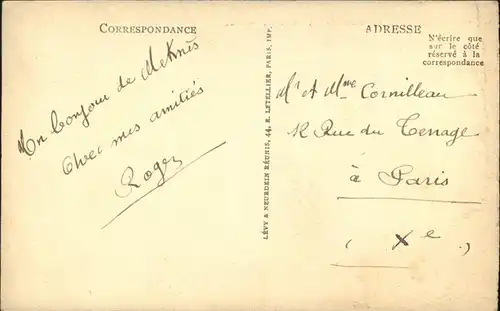 CORRESPONDANCE
Un bonjour de Meknès
Avec mes amitiés
Roger
LÉVY & NEURDEIN RÉUNIS, 44, R. LETELLIER, PARIS, IMP.
ADRESSE
N'écrire que
sur le côté
réservé à la
correspondance
Mr et Mme Cornilleau
12 Rue du Tenage
à Paris
(Xe)